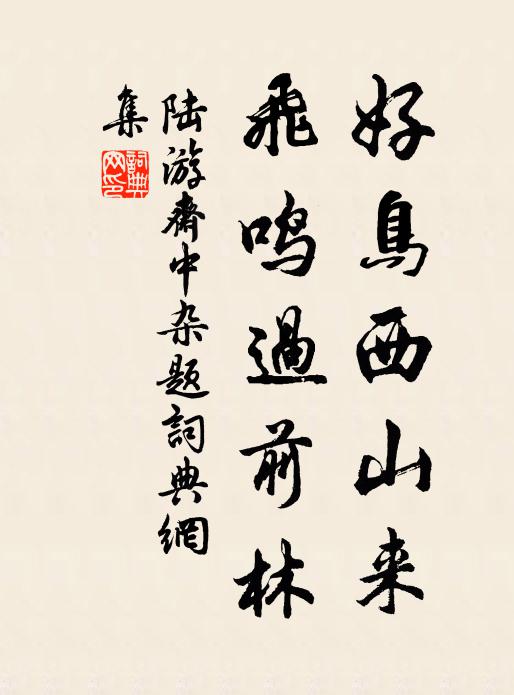 好鳥西山来
飛鳴過前林
陆游齋中杂题詞典網
集
詞典
网印